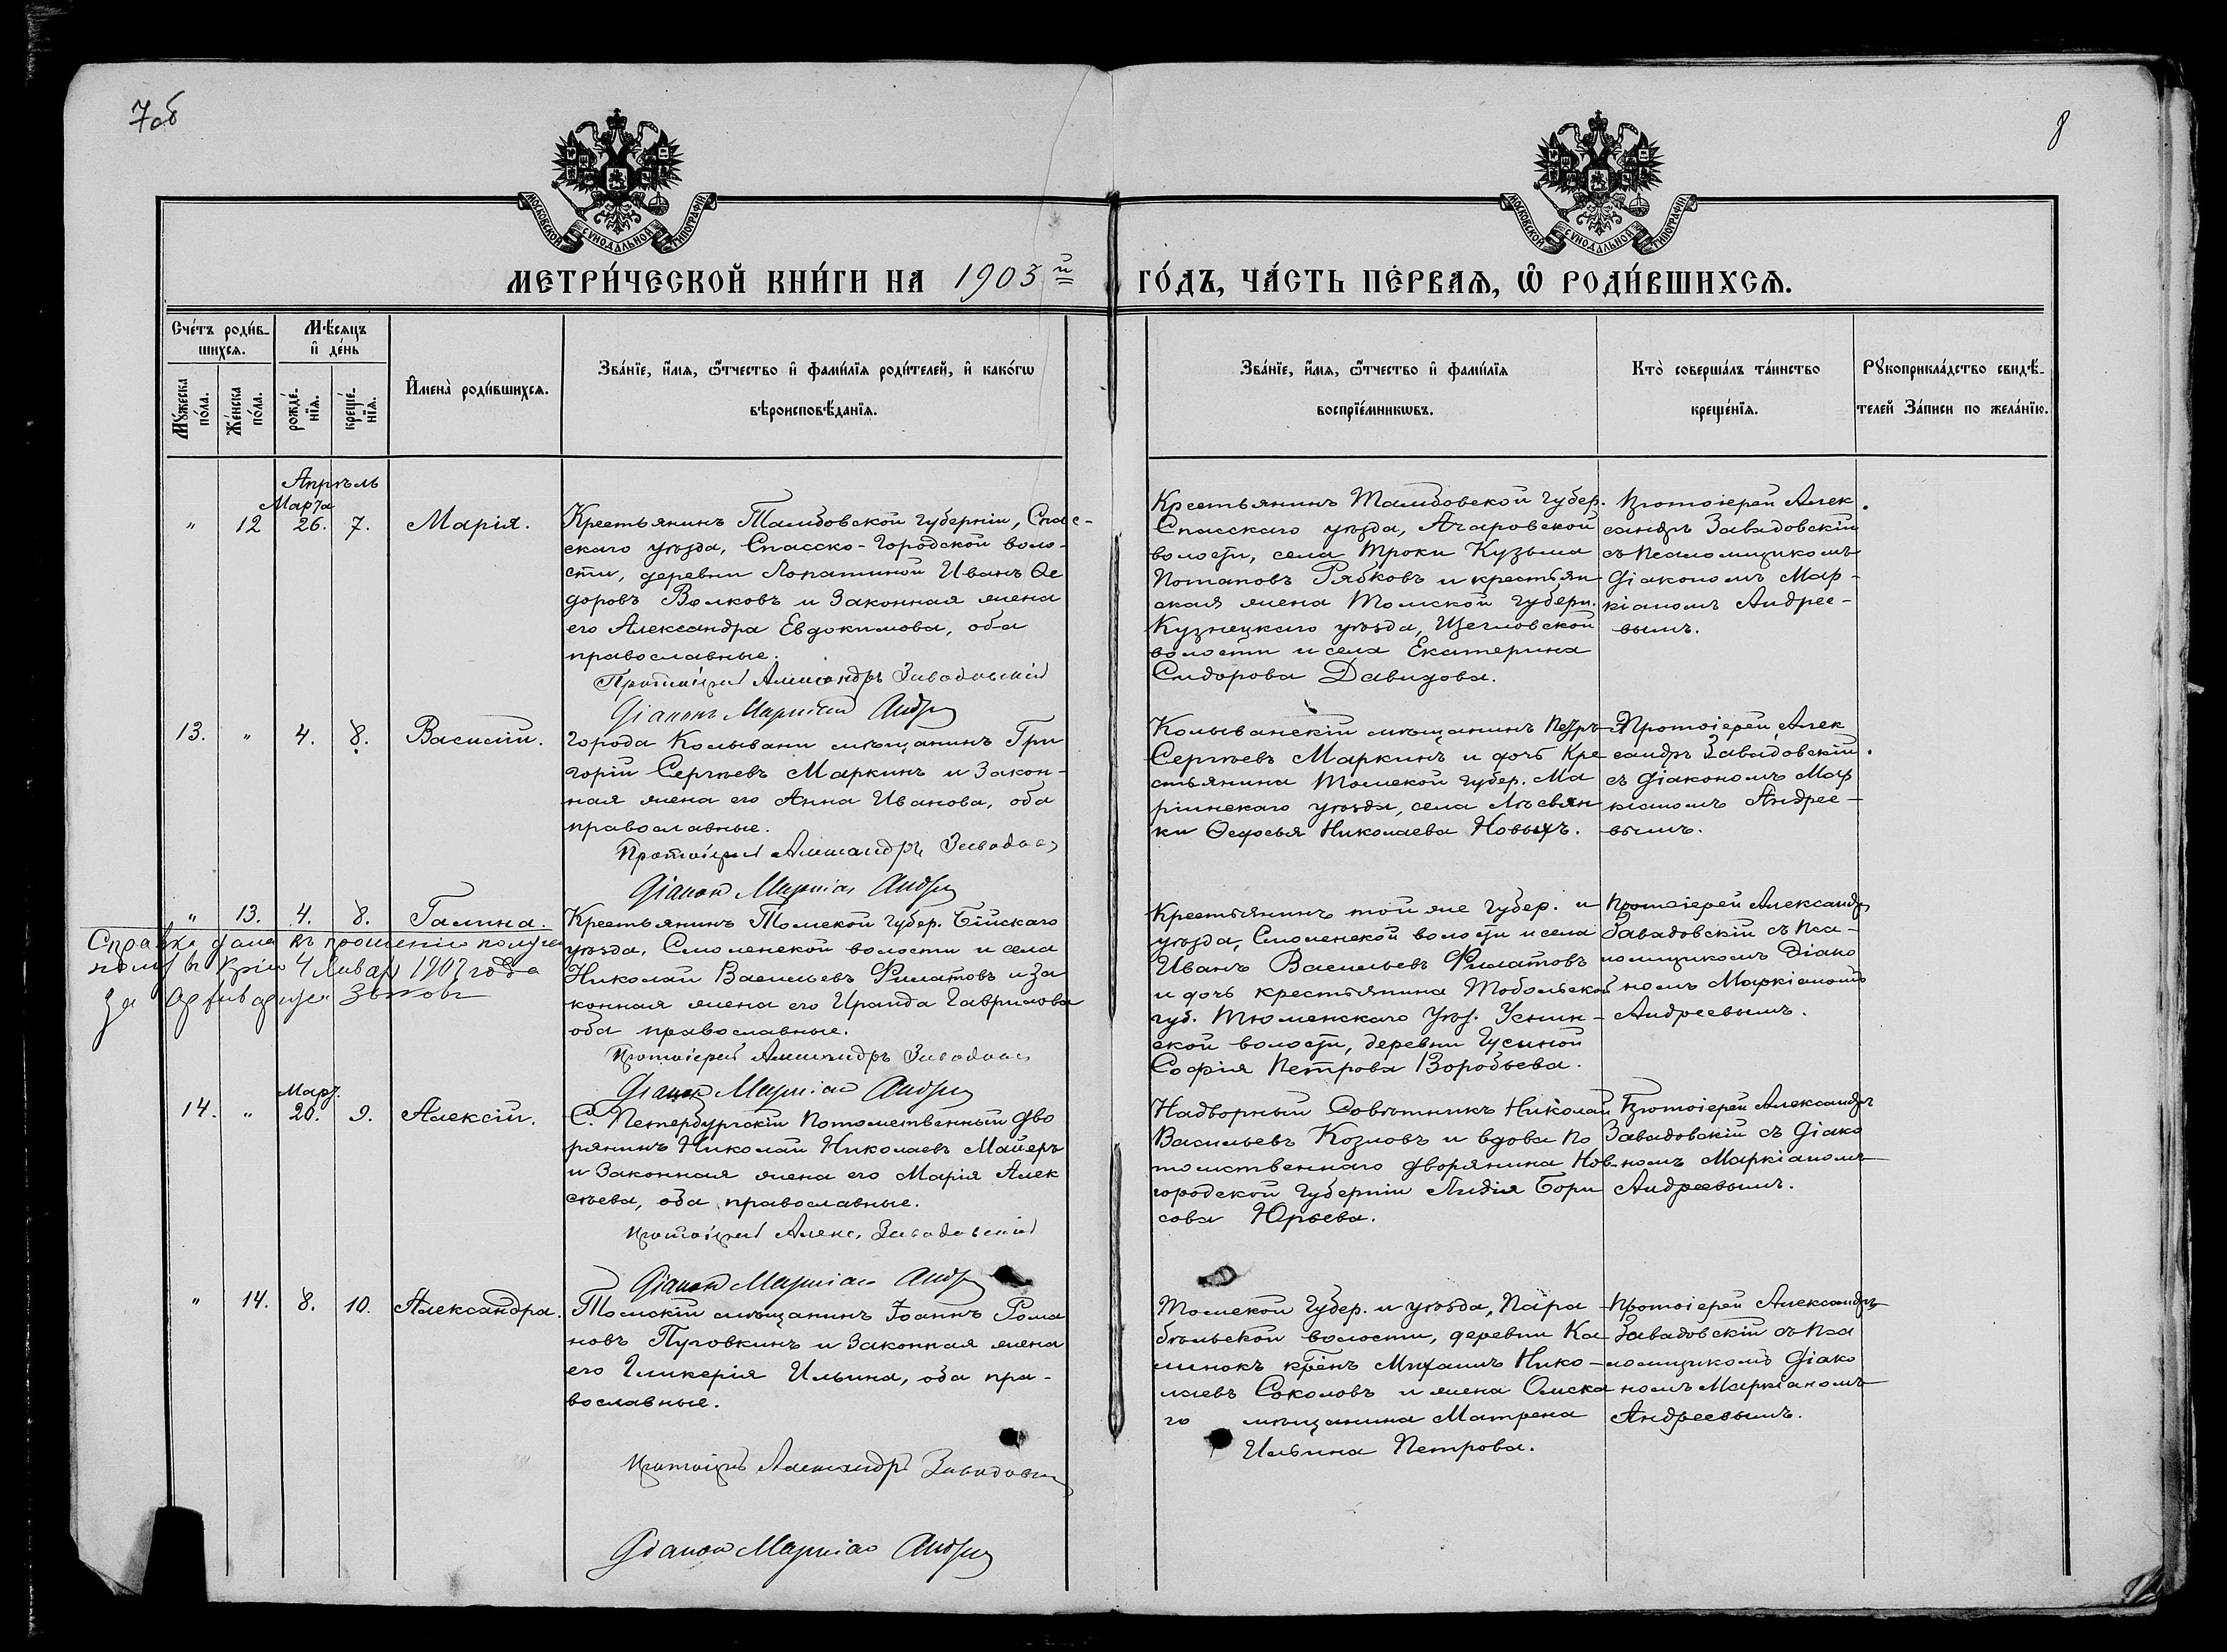 7об
8
МОСКОВСКОЙ СѴНОДАЛЬНОЙ ТИПОГРАФІИ
МОСКОВСКОЙ СѴНОДАЛЬНОЙ ТИПОГРАФІИ
МЕТРИ́ЧЕСКОЙ КНИ́ГИ НА 1903й
ГО́ДЪ, ЧА́СТЬ ПЕ́РВАѦ, Ѡ҆ РОДИ́ВШИХСѦ.
Сче́тъ роди́в-
шихсѧ.
Мꙋ́жеска
по́ла.
Же́нска
по́ла.
Мѣ́сѧцъ
и҆ де́нь
рожде́-
нїѧ.
креще́-
нїѧ.
И҆мена̀ роди́вшихсѧ.
Зва́нїе, и҆́мѧ, ѻ҆́тчество и҆ фами́лїѧ роди́телей, и҆ како́гѡ
вѣроисповѣ́данїѧ.
Зва́нїе, и҆́мѧ, ѻ҆́тчество и҆ фами́лїѧ
воспрїе́мникѡвъ.
Кто̀ соверша́лъ та́инство
креще́нїѧ.
Рꙋкоприкла́дство свидѣ́-
телей За́писи по жела́нїю.
Апрѣль
Марта
" 12 26. 7. Марія.
Крестьянинъ Тамбовской губерніи, Спас-
скаго уѣзда, Спасско-Городской воло-
сти, деревни Лопатиной Иванъ Ѳе
доровъ Волковъ и законная жена
его Александра Евдокимова, оба
православные.
Протоіерей Александръ Заводовскій
Діаконъ Маркіан Андре
Крестьянинъ Тамбовской губер.
Спасскаго уѣзда, Ачаровской
волости, села Троки Кузьма
Потаповъ Рябковъ и крестьян
ская жена Томской губерн.
Кузнецкаго уѣзда, Щегловской
волости и села Екатерина
Сидорова Давыдова.
Протоіерей Алек
сандръ Завадовскій
съ псаломщикомъ
діакономъ Мар-
кіаномъ Андрее-
вымъ.
13. " 4. 8. Василій.
Города Колывани мѣщанинъ Гри
горій Сергѣевъ Маркинъ и закон-
ная жена его Анна Иванова, оба
православные.
Протоіерей Александръ Заводов
Діакон Маркіан Андре
Колыванскій мѣщанинъ Петръ
Сергѣевъ Маркинъ и дочь кре
стьянина Томской губер. Ма
ріинскаго уѣзда, села Лѣсвян
ки Ѳедосья Николаева Новыхъ.
Протоіерей Алек
сандръ Завадовскій
съ діакономъ Мар
кіаномъ Андрее-
вымъ.
" 13. 4. 8. Галина.
Справка дана
4 Январ 1907 года
за
Крестьянинъ Томской губер. Бійскаго
уѣзда, Смоленской волости и села
Николай Васильевъ Филатовъ и за
конная жена его Ираида Гаврилова
оба православные.
Протоіерей Александръ Заводов
Діакон Маркіан Андре
Крестьянинъ той же губер. и
уѣзда, Смоленской волости и села
Иванъ Васильевъ Филатовъ
и дочь крестьянина Тобольской
губ. Тюменскаго уѣз. Усник-
ской волости, деревни Гусиной
Софія Петрова Воробьева.
Протоіерей Александръ
Завадовскій съ пса-
ломщикомъ діако
номъ Маркіаномъ
Андреевымъ.
Март.
14. " 20. 9. Алексій.
С. Петербургскій потомственный дво
рянинъ Николай Николаевъ Майеръ
и законная жена его Марія Алек
сѣева, оба православные.
Протоіерей Алекс. Заводовскій
Діакон Маркіан Андре
Надворный Совѣтникъ Николай
Васильевъ Козловъ и вдова по
томственнаго дворянина Нов-
городской губерніи Лидія Бори
сова Юрьева.
Протоіерей Александръ
Завадовскій съ діако
номъ Маркіаномъ
Андреевымъ.
" 14. 8. 10. Александра.
Томскій мѣщанинъ Іоаннъ Рома
новъ Пуговкинъ и законная жена
его Гликерія Ильина, оба пра-
вославные.
Протоіерей Александръ Заводовск
Діакон Маркіан Андре
Томской губер. и уѣзда, Пара
бѣльской волости, деревни Ка
линокъ крѣнъ Михаилъ Нико-
лаевъ Соколовъ и жена Омска
го мѣщанина Матрена
Ильина Петрова.
Протоіерей Александръ
Завадовскій съ пса
ломщикомъ діако
номъ Маркіаномъ
Андреевымъ.